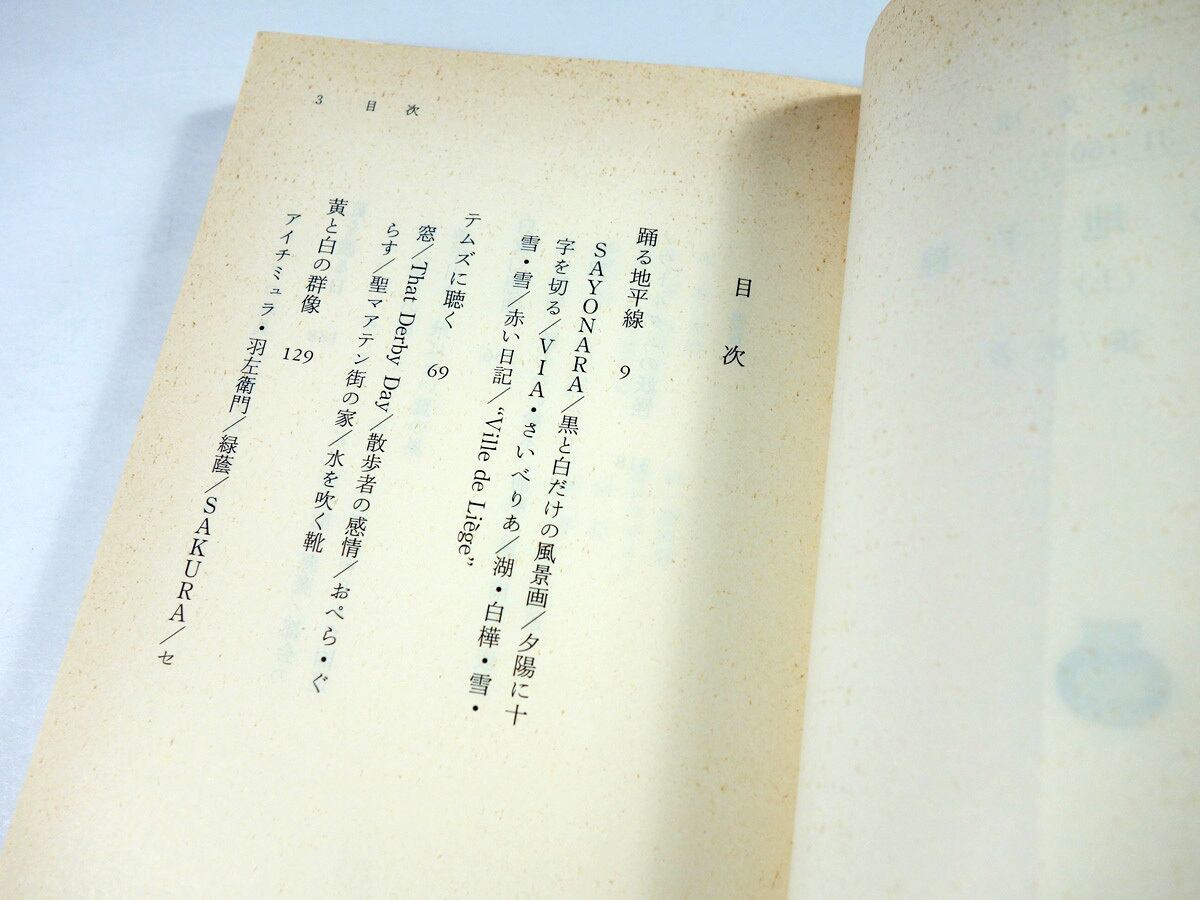 3 目次
目次
踊る地平線 9
SAYONARA／黒と白だけの風景画／夕陽に十
字を切る／VIA・さいべりあ／湖・白樺・雪・
雪・雪／赤い日記／“Ville de Liège”
テムズに聴く 69
窓／That Derby Day／散歩者の感情／おぺら・ぐ
らす／聖マアテン街の家／水を吹く靴
黄と白の群像 129
アイチミュラ・羽左衛門／緑蔭／SAKURA／セ